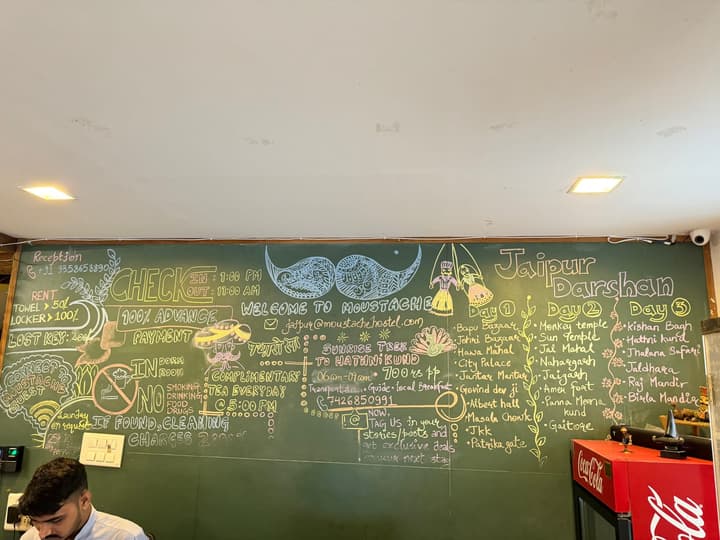 Reception
+91 9358458890
RENT
TOWEL > 50/-
LOCKER > 100/-
LOST KEY:
CHECK IN : 1:00 PM
OUT : 11:00 AM
100% ADVANCE
PAYMENT
IN DORM
ROOM
NO SMOKING
DRINKING
FOOD
DRUGS
IF FOUND, CLEANING
CHARGES
MOUSTACHE
Laundry
on request
WELCOME TO MOUSTACHE
jaipur@moustachehostel.com
COMPLIMENTARY
TEA EVERYDAY
@ 5:00 PM
SUNRISE TREK
TO HATHNI KUND
700 RS PP
Guide · local Breakfast
7426850991
NOW,
TAG US in your
stories/posts and
get exclusive deals
next stay
Jaipur
Darshan
Day 1
• Bapu Bazaar
• Johri Bazaar
• Hawa Mahal
• City Palace
• Jantar Mantar
• Govind dev ji
• Albert hall
• Masala Chowk
• Jkk
• Patrika gate
Day 2
• Monkey temple
• Sun temple
• Jal Mahal
• Nahargarh
• Jaigarh
• Amer fort
• Panna Meena
kund
• Gaitore
Day 3
• Kishan Bagh
• Hathni kund
• Jhalana Safari
• Jaldhara
• Raj Mandir
• Birla Mandir
Coca-Cola